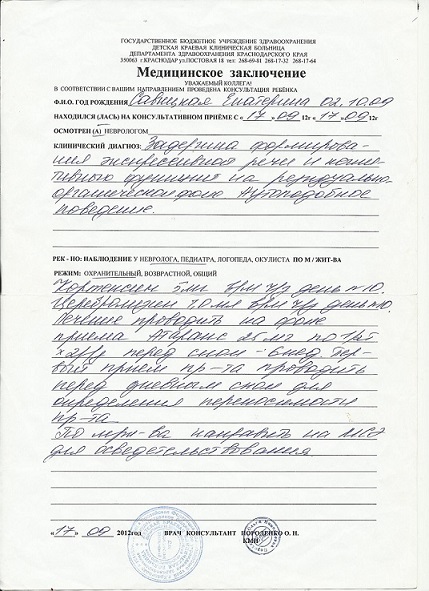 ГОСУДАРСТВЕННОЕ БЮДЖЕТНОЕ УЧРЕЖДЕНИЕ ЗДРАВООХРАНЕНИЯ
ДЕТСКАЯ КРАЕВАЯ КЛИНИЧЕСКАЯ БОЛЬНИЦА
ДЕПАРТАМЕНТА ЗДРАВООХРАНЕНИЯ КРАСНОДАРСКОГО КРАЯ
350063 г.КРАСНОДАР ул.ПОСТОВАЯ 18 тел: 268-69-81 268-17-32 268-17-64
Медицинское заключение
УВАЖАЕМЫЙ КОЛЛЕГА!
В СООТВЕТСТВИИ С ВАШИМ НАПРАВЛЕНИЕМ ПРОВЕДЕНА КОНСУЛЬТАЦИЯ РЕБЁНКА
Ф.И.О. ГОД РОЖДЕНИЯ Савицкая Екатерина 02.10.09
НАХОДИЛСЯ (ЛАСЬ) НА КОНСУЛЬТАТИВНОМ ПРИЁМЕ С «17».09 12г «17».09 12г
ОСМОТРЕН (А) НЕВРОЛОГОМ
КЛИНИЧЕСКИЙ ДИАГНОЗ: Задержка формирова-
ния экспрессивной речи и когни-
тивного функций на резидуально-
органическом фоне. Аутоподобное
поведение.
РЕК - НО: НАБЛЮДЕНИЕ У НЕВРОЛОГА, ПЕДИАТРА, ЛОГОПЕДА, ОКУЛИСТА ПО М / ЖИТ-ВА
РЕЖИМ: ОХРАНИТЕЛЬНЫЙ, ВОЗВРАСТНОЙ, ОБЩИЙ
Кортексин 5 мг в/м ч/з день №10.
Церебролизин 1.0 мл в/м ч/з день №10.
Лечение проводить на фоне
приема Атаракс 25 мг по 1/4 т
перед сном - 6 нед. Пер-
вый прием пр-та проводить
перед дневным сном для
определения переносимости
пр-та.
По м/жи-ва направить на МСЭ
для осведетельствования
«17» 09 2012год ВРАЧ КОНСУЛЬТАНТ ПОГОДЕНКО О. Н.
КМН